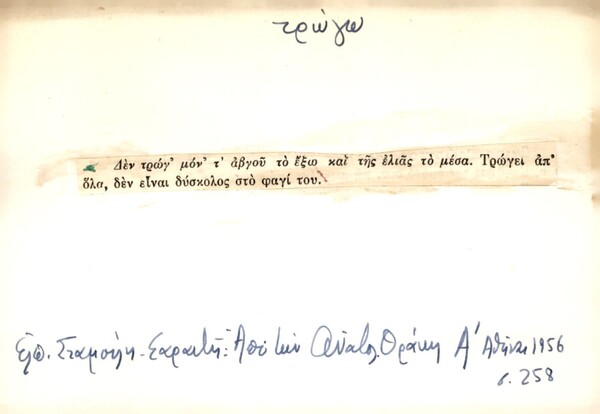 τρώγω
Δὲν τρώγ' μόν' τ' ἀβγοῦ τὸ ἔξω καὶ τῆς ἐλιᾶς τὸ μέσα. Τρώγει ἀπ'
ὅλα, δὲν εἶναι δύσκολος στὸ φαγί του.
Ἐλπ. Σταμούλη-Σαραντῆ: Ἀπὸ τὴν Ἀνατολ. Θράκη Α' Ἀθῆναι 1956
σ. 258